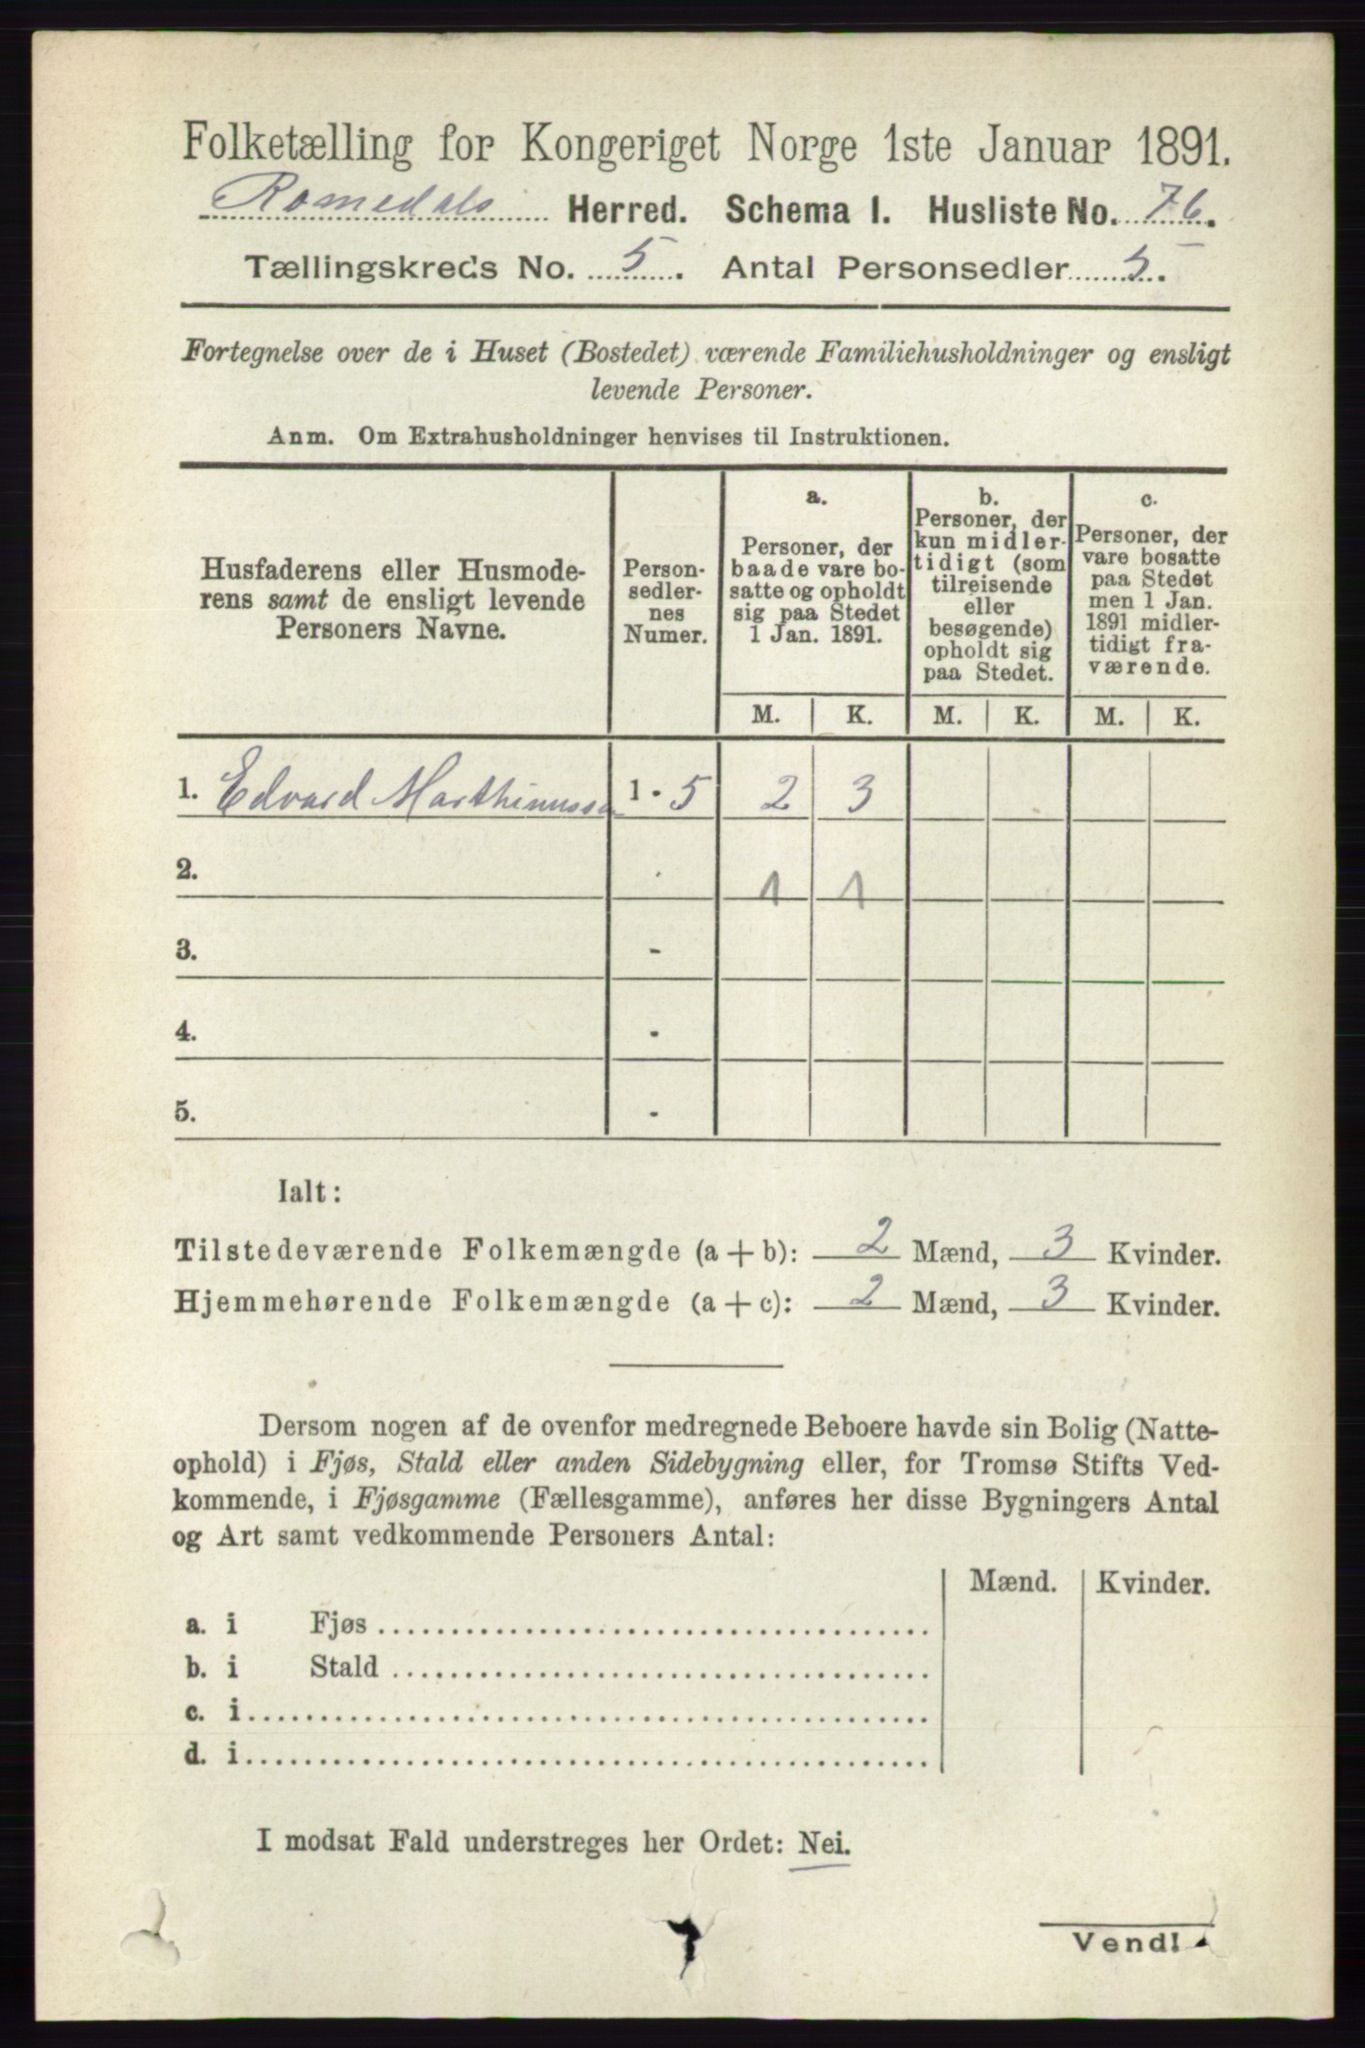 Folketælling for Kongeriget Norge 1ste Januar 1891.
Romedals Herred. Schema I. Husliste No. 76.
Tællingskreds No. 5. Antal Personsedler 5.
Fortegnelse over de i Huset (Bostedet) værende Familiehusholdninger og ensligt
levende Personer.
Anm. Om Extrahusholdninger henvises til Instruktionen.
Husfaderens eller Husmode-
rens samt de ensligt levende
Personers Navne.
Person-
sedler-
nes
Numer.
a.
Personer, der
baade vare bo-
satte og opholdt
sig paa Stedet
1 Jan. 1891.
b.
Personer, der
kun midler-
tidigt (som
tilreisende
eller
besøgende)
opholdt sig
paa Stedet.
c.
Personer, der
vare bosatte
paa Stedet
men 1 Jan.
1891 midler-
tidigt fra-
værende.
M. K. M. K. M. K.
1. Edvard Marthinussen 1 - 5 2 3
2. 1 1
3. -
4. -
5. -
Ialt:
Tilstedeværende Folkemængde (a + b): 2 Mænd, 3 Kvinder.
Hjemmehørende Folkemængde (a + c): 2 Mænd, 3 Kvinder.
Dersom nogen af de ovenfor medregnede Beboere havde sin Bolig (Natte-
ophold) i Fjøs, Stald eller anden Sidebygning eller, for Tromsø Stifts Ved-
kommende, i Fjøsgamme (Fællesgamme), anføres her disse Bygningers Antal
og Art samt vedkommende Personers Antal:
Mænd. Kvinder.
a. i Fjøs
b. i Stald
c. i
d. i
I modsat Fald understreges her Ordet: Nei.
Vend!